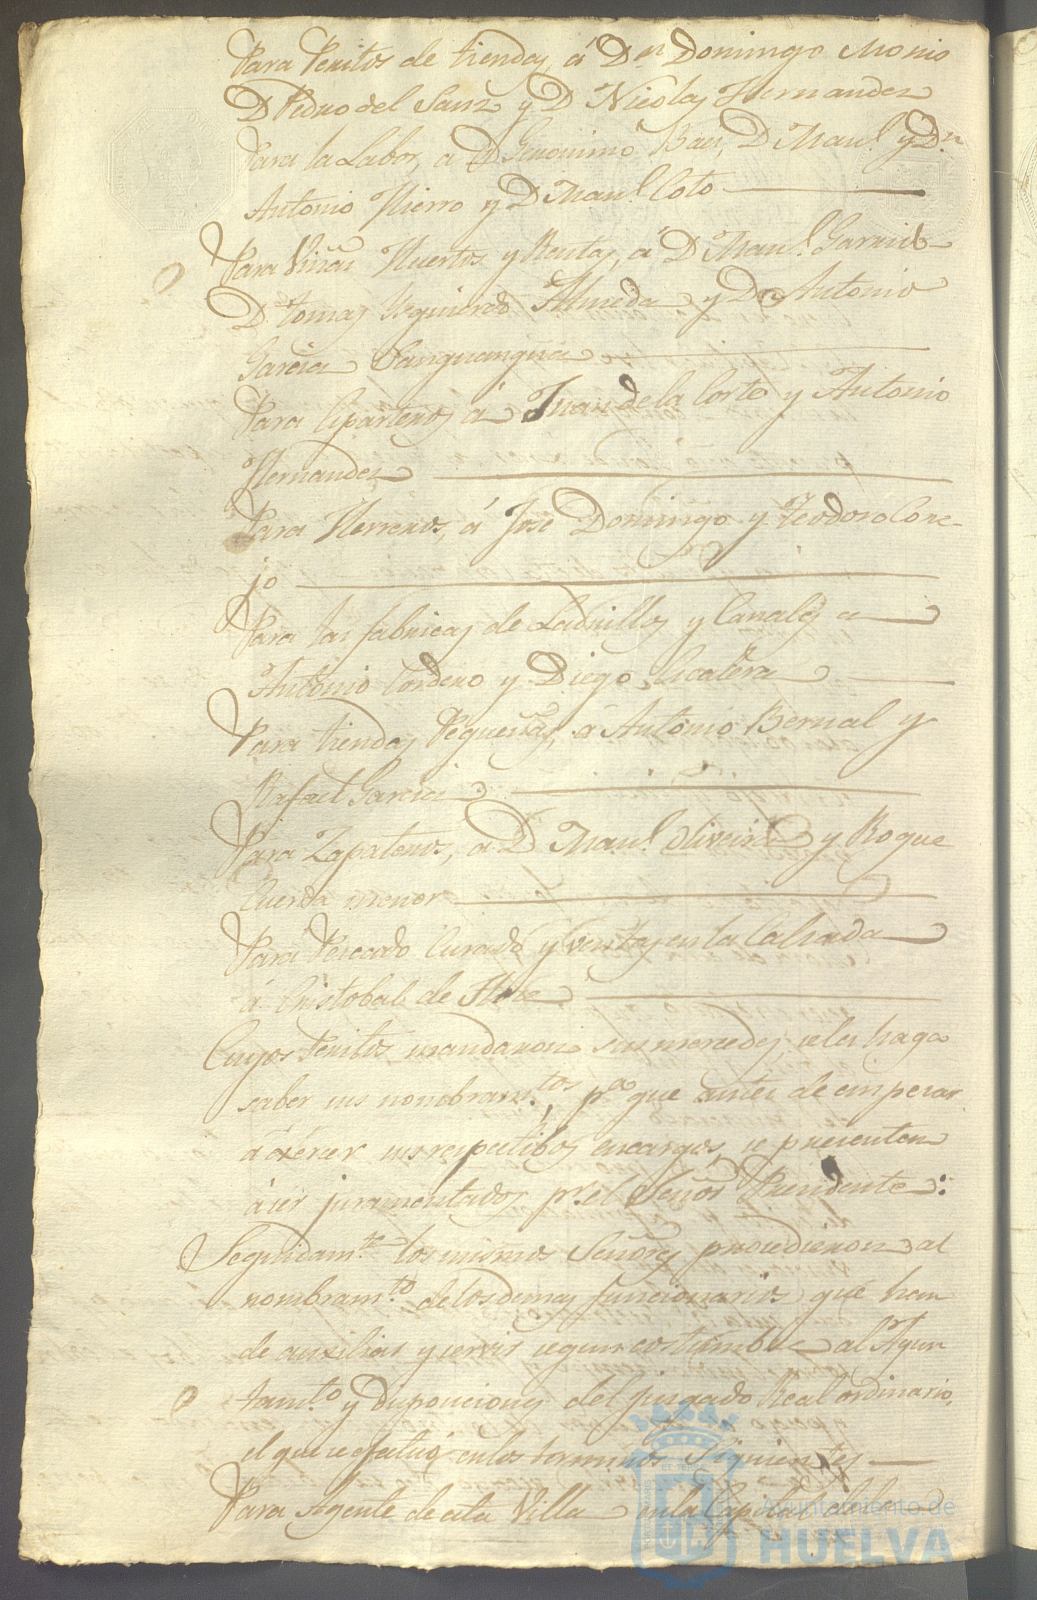 Para Peritos de tiendas, á Dn. Domingo Monis
D. Pedro del Sanz y D. Nicolas Hernandez
Para la Labor, a D. Geronimo Baez, D. Manl. y Dn.
Antonio Hierro y D. Manl. Coto
Para Viñas Huertos y Rentas, á D. Manl. Garrido
D. Tomas Izquierdo Almeda y Dn. Antonio
Garcia
Para Carpinteros á Juan de la Corte y Antonio
Hernandez
Para Herreros, á José Domingo y Teodoro Cone-
jo
Para las fabricas de Ladrillos y Canales a
Antonio Cordero y Diego Escalera
Para tiendas Pequeñas, á Antonio Bernal y
Rafael Garcia
Para Zapateros, á D. Manl. Oliveira y Roque
Cuerda menor
Para Pescado Curado y ventas en la Calzada
á Cristobal de
Cuyos Peritos mandaron sus mercedes, se les haga
saber sus nombramtos. pa. que antes de empezar
á exercer sus respectibos encargos, se presenten
á ser juramentados pr. el Señor Presidente:
Seguidamte. los mismos Señores procedieron al
nombramto. de los demas funcionarios que han
de auxiliar y servir segun costumbre al Ayun
tamto. y disposiciones del juzgado Real ordinario,
el que se efectuó en los terminos siguientes
Para Agente de esta Villa en la Capital de
Ayuntamiento de
HUELVA